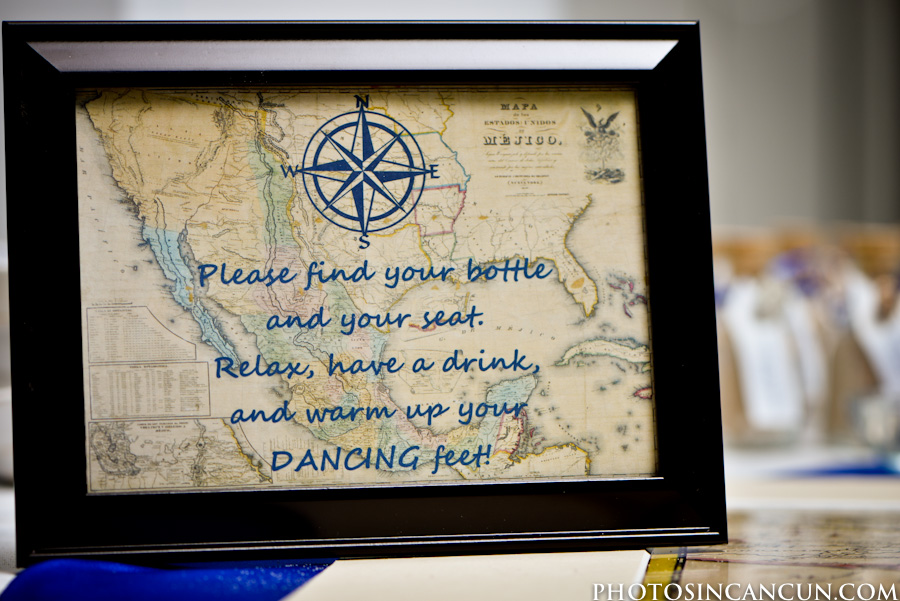 N
W
E
S
MAPA
ESTADOS UNIDOS
MÉJICO,
Please find your bottle
and your seat.
Relax, have a drink,
and warm up your
DANCING feet!
PHOTOSINCANCUN.COM